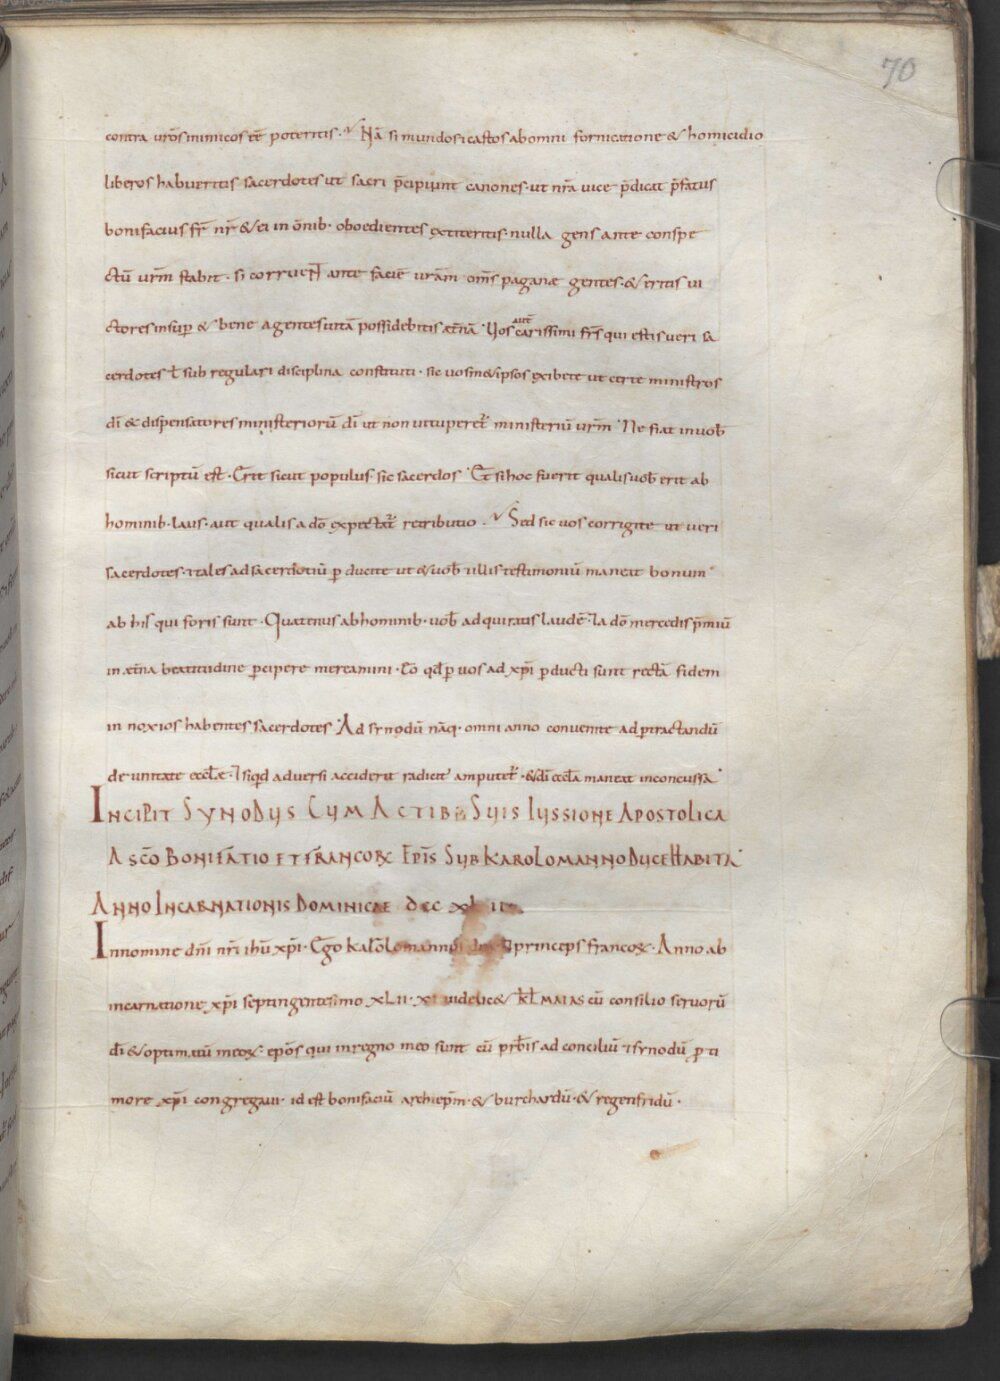 70
contra urōs inimicos eē poteritis. Nā si mundos & castos ab omni fornicatione & homicidio
liberos habueritis sacerdotes ut sacri p̄cipiunt canones. ut nr̄a uice p̄dicat p̄fatus
bonifacius fr̄ nr̄ & ei in ōnib. oboedientes extiteritis. nulla gens ante conspe
ctū urm̄ stabit. si corruent ante faciē urām om̄s paganæ gentes. & eritis ui
ctores insup̄ & bene agentes uitā possidebitis æt̄nā. Uos aut̄ carissimi fr̄s qui estis ueri sa
cerdotes ł sub regulari disciplina constituti. sic uosm&ipsos exibete ut certe ministros
dī & dispensatores ministeriorū dī ut non uituperet̄ ministeriū urm̄. Ne fiat in uob̄
sicut scriptū est. Erit sicut populus sic sacerdos. Et si hoc fuerit qualis uob̄ erit ab
hominib. laus. aut qualis a dō expectat̄ retributio. Sed sic uos corrigite ut ueri
sacerdotes. & tales ad sacerdotiū p̄ducite ut & uob̄ & illis testimoniū maneat bonum
ab his qui foris sunt. Quatinus ab hominib. uob̄ adquiratis laudē. & a dō mercedis p̄miū
in æt̄na beatitudine p̄cipere mereamini. Eō qd̄ p̄ uos ad xp̄i p̄ducti sunt rectā fidem
innoxios habentes sacerdotes. Ad synodū nāq. omni anno conuenite ad p̄tractandū
de unitate eccl̄æ. & siqd̄ aduersi acciderit radicit̄ amputet̄. & dī eccl̄a maneat inconcussa.
INCIPIT SYNODUS CUM ACTIBUS SUIS IUSSIONE APOSTOLICA
A SC̄O BONIFATIO ET FRANCORꝜ EPĪS SUB KAROLOMANNO DUCE HABITA.
ANNO INCARNATIONIS DOMINICAE DCC XL II.
In nomine dn̄i nr̄i ihū xp̄i. Ego karolomannus dux & princeps francoꝝ. Anno ab
incarnatione xp̄i septingentesimo XLII. XI uidelic& kl̄ MAIAS cū consilio seruorū
dī & optimatū meoꝝ. epōs qui in regno meo sunt cū prb̄is ad conciliū & synodū p̄ ti
more xp̄i congregaui. id est bonifaciū archiep̄m. & burchardū. & regenfridū.